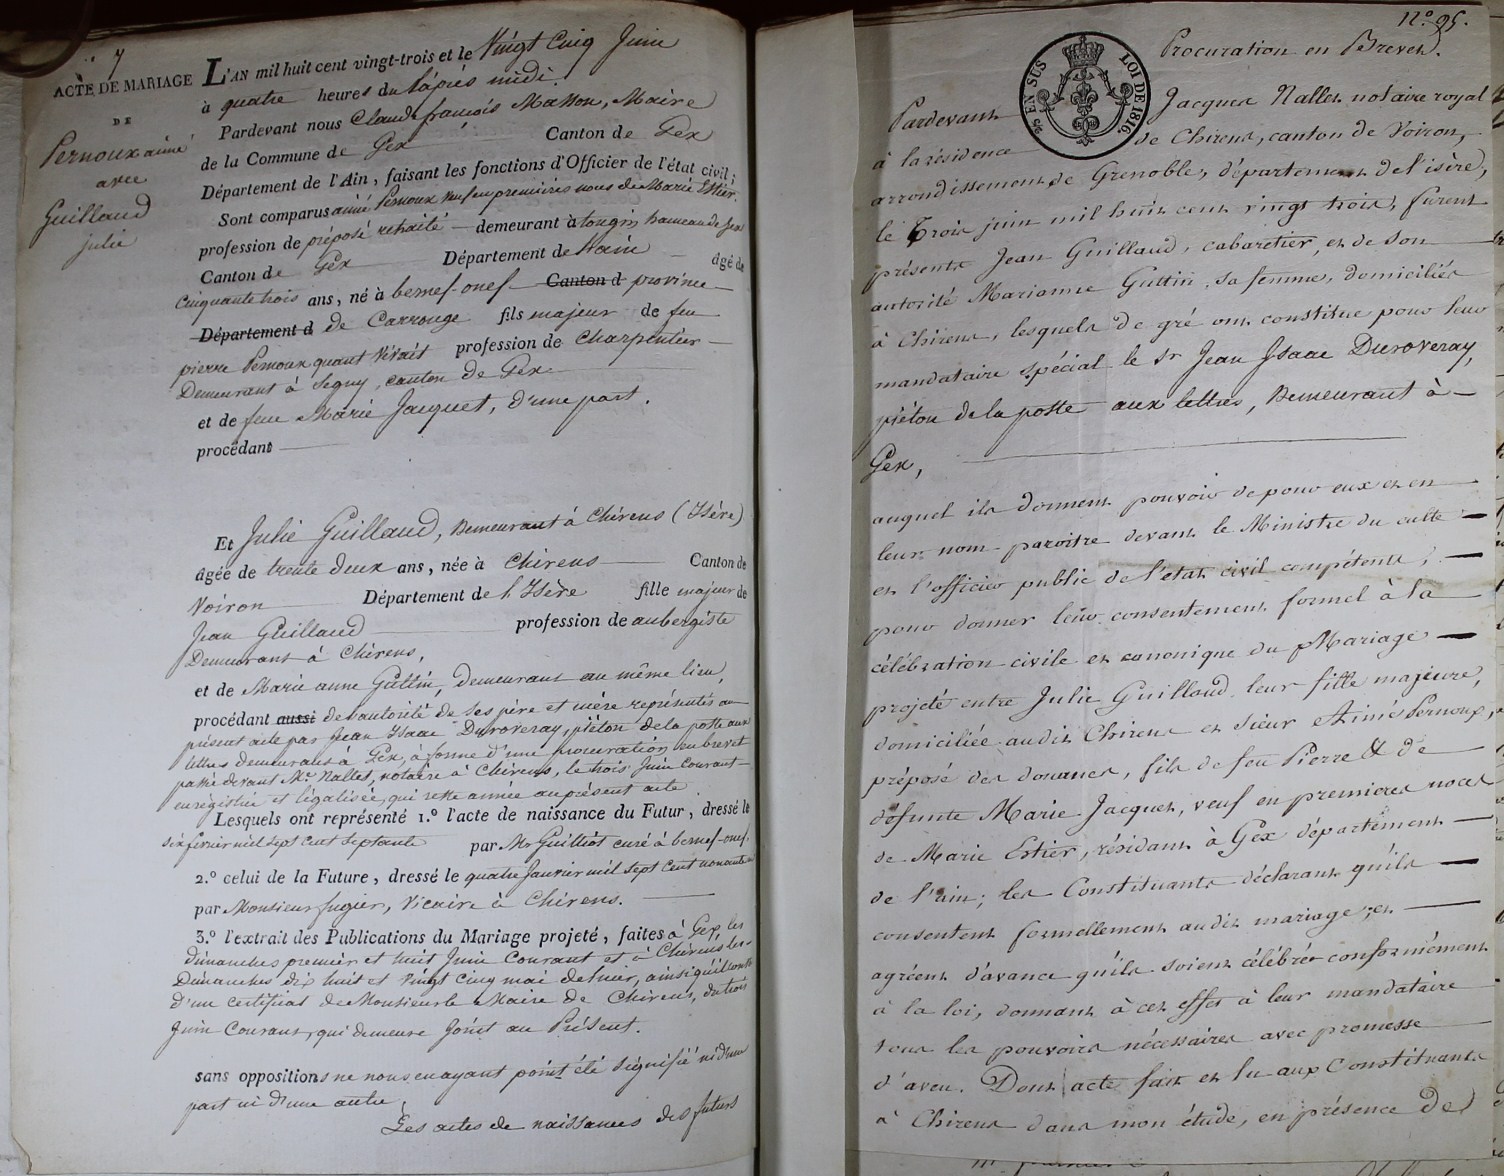 7
ACTE DE MARIAGE
DE
Pernoux aimé
avec
Guillaud
julie
L'AN mil huit cent vingt-trois et le Vingt Cinq Juin
à quatre heures du l'après midi
Pardevant nous Claude françois Masson, Maire
de la Commune de Gex Canton de Gex
Département de l'Ain, faisant les fonctions d'Officier de l'état civil;
Sont comparus aimé Pernoux veuf en premières noces de Marie Estier.
profession de préposé retraité — demeurant à tougin hameau de Gex
Canton de Gex Département de l'ain âgé de
Cinquante trois ans, né à bernef-onef Canton d province
Département d de Carrouge fils majeur de feu
pierre Pernoux quant vivait profession de Charpentier
Demeurant à Segny, canton de Gex
et de feue Marie Jacquet, d'une part.
procédant
Et Julie Guillaud, Demeurant à Chirens (Isère)
âgée de trente deux ans, née à Chirens Canton de
Voiron Département de l'Isère fille majeur de
Jean Guillaud profession de aubergiste
Demeurant à Chirens,
et de Marie anne Guttin, demeurant au même lieu,
procédant aussi de l'autorité de ses père et mère représentés au
présent acte par Jean Isaac Duroveray, piéton de la poste aux
lettres demeurant à Gex, à forme d'une procuration en brevet
passée devant Mr. Nallet, notaire à Chirens, le trois Juin Courant
enregistrée et légalisée, qui reste année au présent acte.
Lesquels ont représenté 1.º l'acte de naissance du Futur, dressé le
six fevrier mil sept cent septante par Mr Guilliot curé à bernef-onef.
2.º celui de la Future, dressé le quatre Janvier mil sept cent nonante un
par Monsieur fugier, Vicaire à Chirens.
3.º l'extrait des Publications du Mariage projeté, faites à Gex, les
dimanches premier et huit Juin Courant et à Chirens les
Dimanches dix huit et vingt cinq mai dernier, ainsi qu'il conste
d'un certificat de Monsieur le Maire de Chirens, du trois
Juin Courant, qui demeure joint au Présent.
sans oppositions ne nous en ayant point été signifié ni d'une
part ni d'une autre.
Les actes de naissances des futurs
Nº. 95.
Procuration en Brevet.
EN SUS
LOI DE 1816.
Pardevant Jacques Nallet notaire royal
à la résidence de Chirens, canton de Voiron,
arrondissement de Grenoble, département de l'isère,
le Trois juin mil huit cent vingt trois, furent
présents Jean Guillaud, cabaretier, et de son
autorité Marianne Guttin, sa femme, domiciliés
à Chirens, lesquels de gré ont constitué pour leur
mandataire spécial le Sr Jean Isaac Duroveray,
piéton de la poste aux lettres, Demeurant à —
Gex,
auquel ils donnent pouvoir de pour eux et en
leur nom paroitre devant le Ministre du culte
et l'officier public de l'etat civil compétents,
pour donner leur consentement formel à la
célébration civile et canonique du Mariage
projeté entre Julie Guillaud leur fille majeure,
domiciliée audit Chirens et sieur Aimé Pernoux,
préposé des douanes, fils de feu Pierre & de
défunte Marie Jacquet, veuf en premieres noces
de Marie Estier, résidant à Gex département
de l'ain; les Constituants déclarant qu'ils
consentent formellement audit mariage; et
agréent d'avance qu'ils soient célébrés conformément
à la loi, donnant à cet effet à leur mandataire
tous les pouvoirs nécessaires avec promesse
d'aveu. Dont acte fait et lu aux Constituants
à Chirens dans mon étude, en présence des